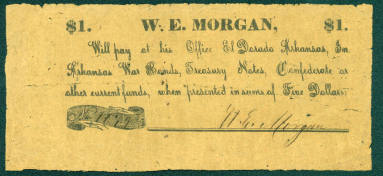 $1. W. E. MORGAN, $1.
Will pay at his Office El Dorado Arkansas, In
Arkansas War Bonds, Treasury Notes, Confederate or
other current funds, when presented in sums of Five Dollars.
No
W. E. Morgan